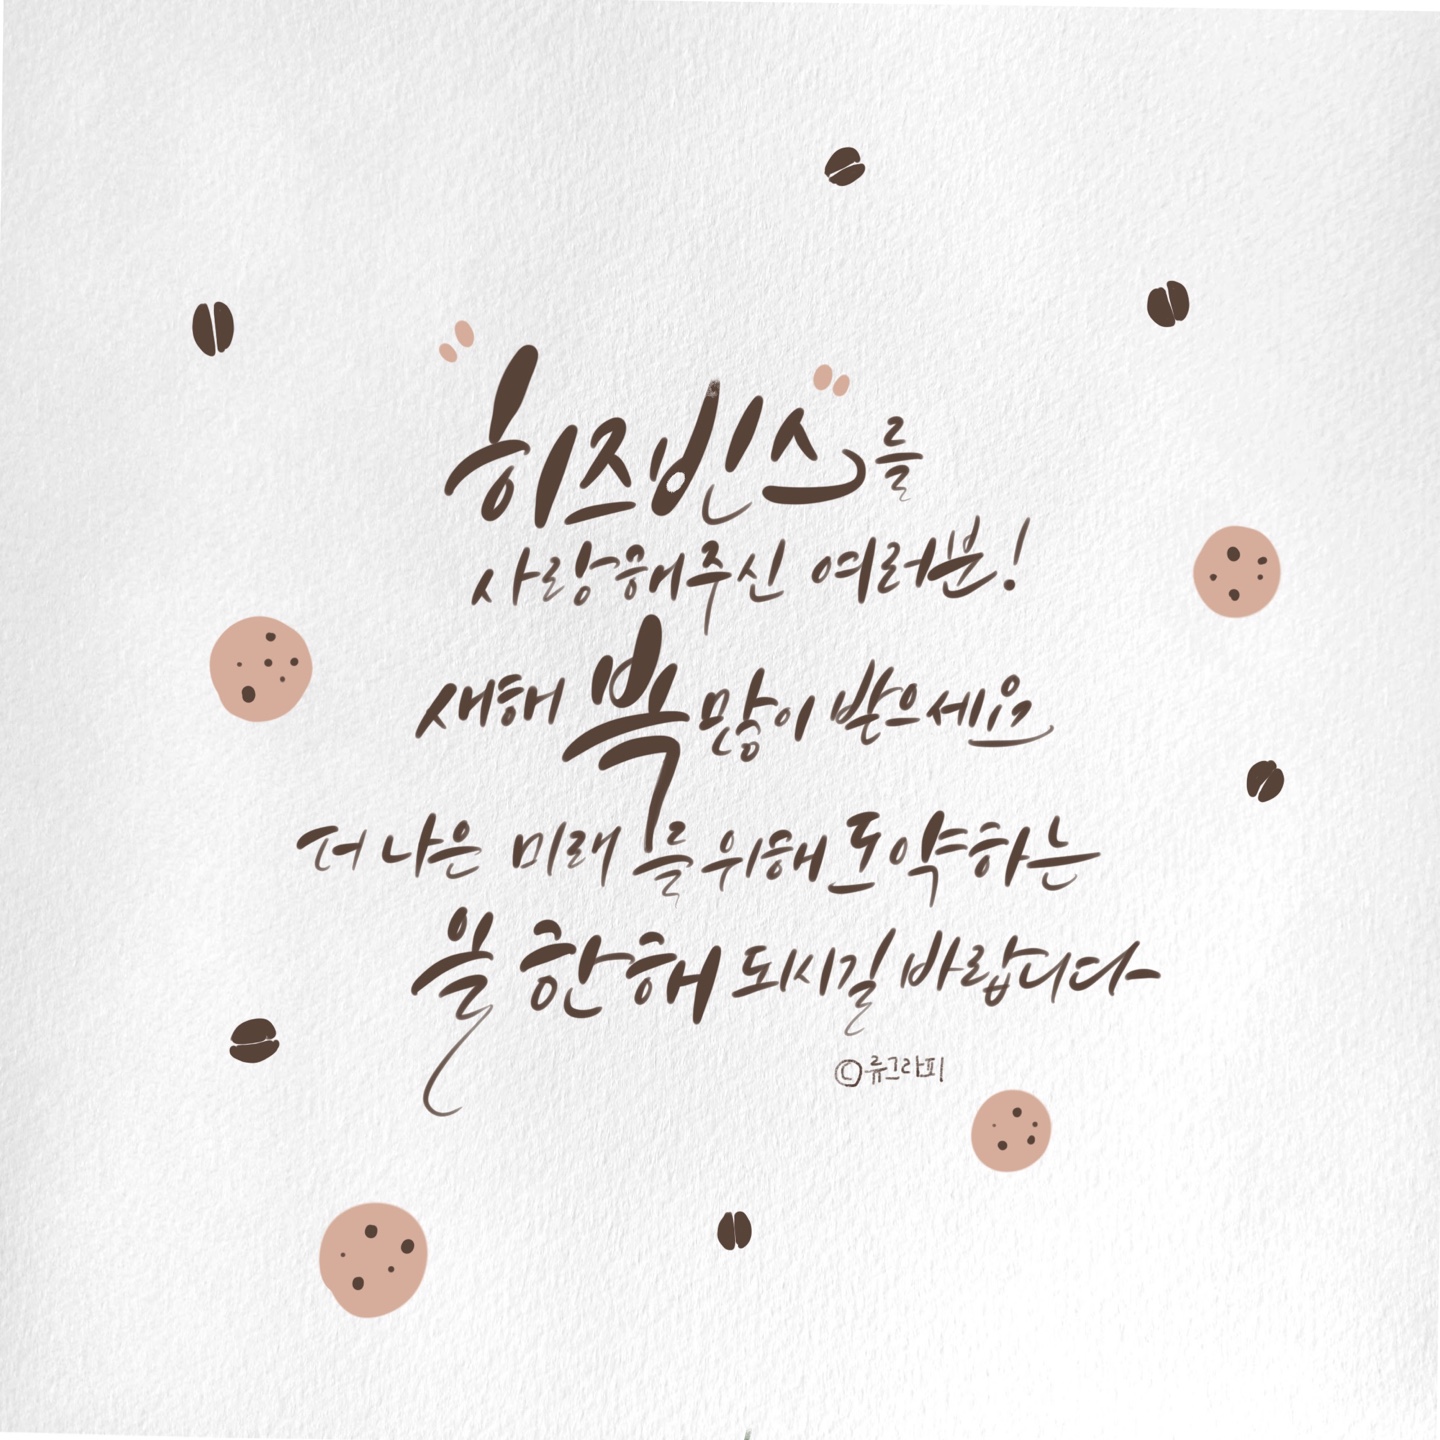 히즈빈스를
사랑해주신 여러분!
새해 복 많이 받으세요
더 나은 미래를 위해 도약하는
올 한해 되시길 바랍니다
©류그라피